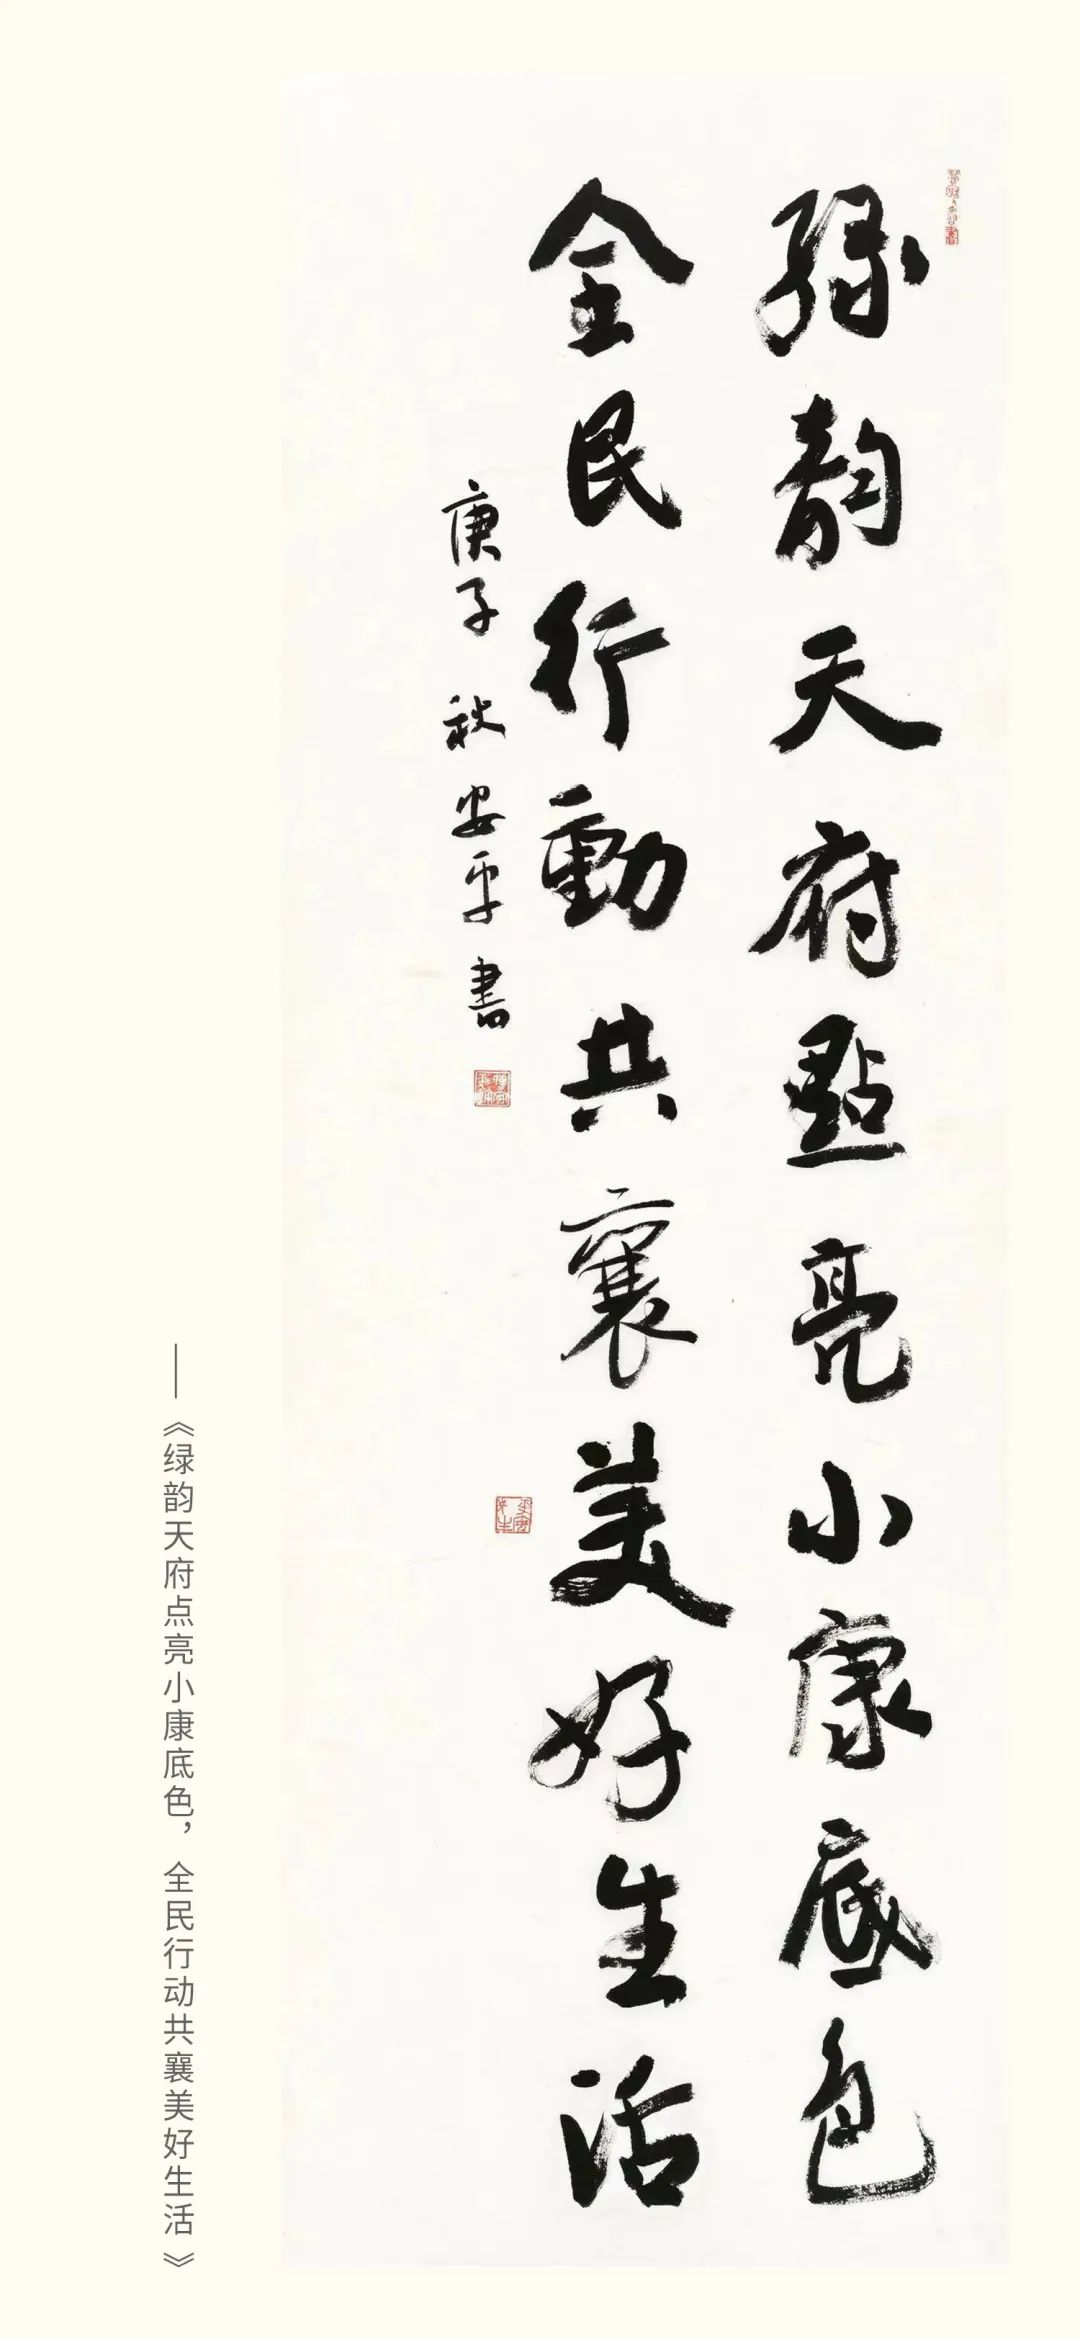 绿韵天府點亮小康底色
全民行動共襄美好生活
庚子秋安平書
——《绿韵天府点亮小康底色，全民行动共襄美好生活》